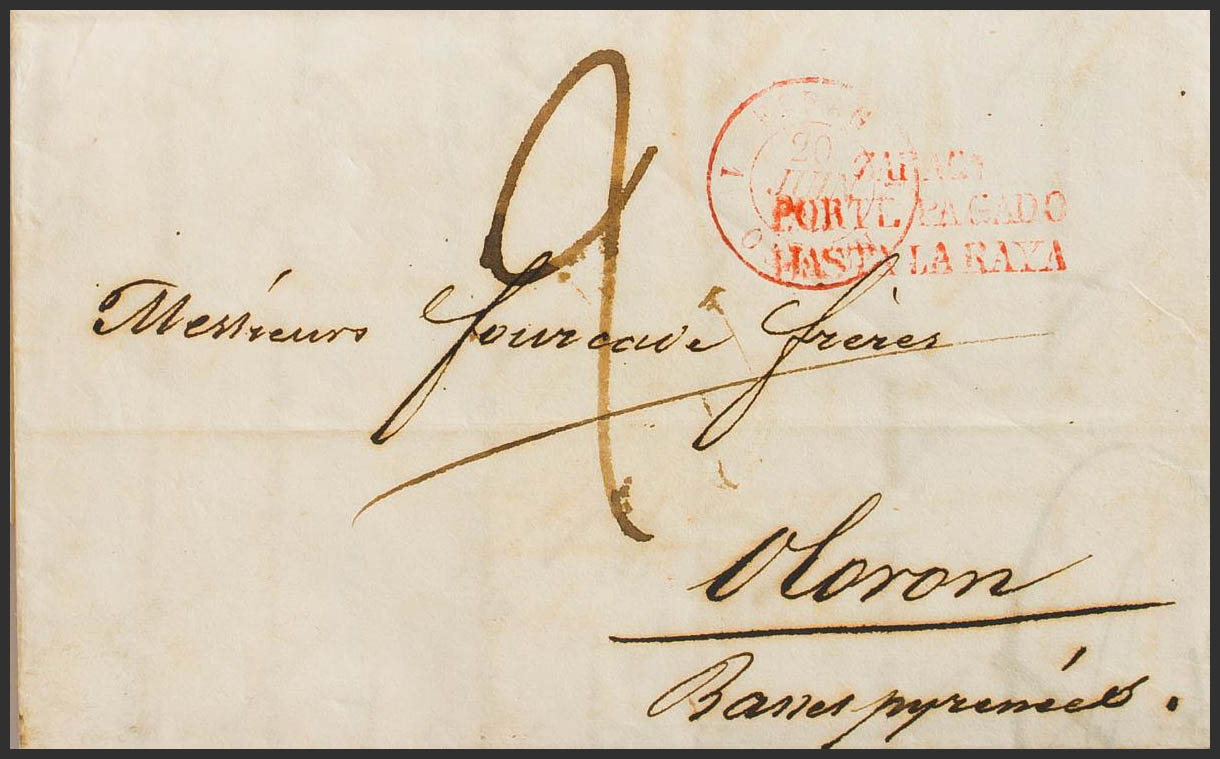 20
PORTE PAGADO
HASTA LA RAYA
Messieurs fourcade frères
Oloron
Basses pyrenées.